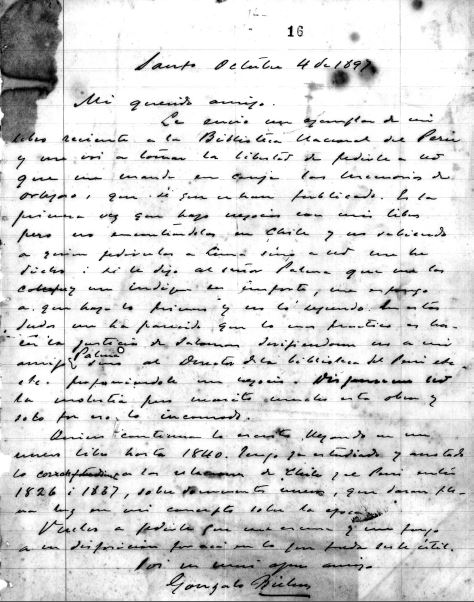 16
Santo Octubre 4 de 1897
Mi querido amigo.
Le envio un ejemplar de mi
libro reciente a la Biblioteca Nacional del Perú
y me voi a tomar la libertad de pedirle a Ud
que me mande en canje las Memorias de
que se han publicado. Es la
primera vez que hago negocios con mis libros
pero no encontrándolas en Chile y no sabiendo
a quien pedirselas a Lima sino a Ud me he
dicho: si le digo al señor Palma que me las
compre y me indique su importe, me espongo
a que haga lo primero y no lo segundo. En esta
duda me ha parecido que lo mas practico es
la justicia de Salomon dirijiendome no a mi
amigo Palma sino al Director de la biblioteca del Perú etc
etc. proponiendole un negocio. Dispenseme Ud
la molestia pero necesito mucho esta obra y
solo por eso lo incomodo.
Quiero continuar lo escrito llegando en un
nuevo libro hasta 1840. Tengo ya estudiado y anotado
lo correspondiente a las relaciones de Chile y el Perú entre
1826 i 1837, sobre documentos nuevos, que daran
luz en mi concepto sobre la época.
Vuelvo a pedirle que me escuse y me pongo
a su disposicion por acá en lo que pueda serle útil.
Soi su mui afmo amigo
Gonzalo Bulnes